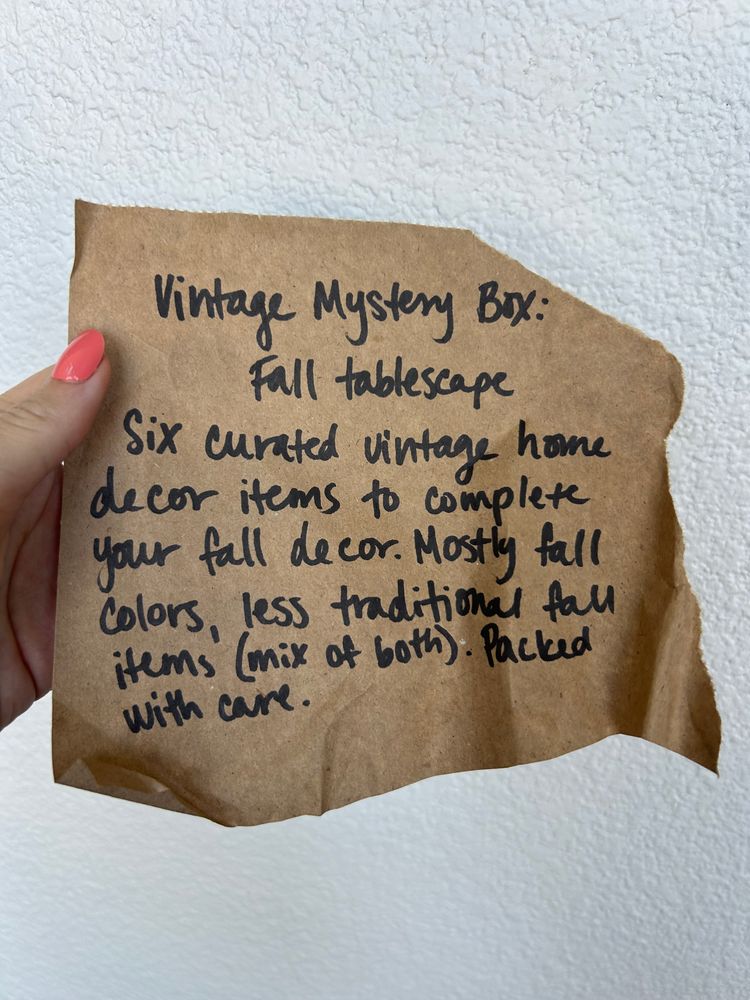 Vintage Mystery Box:
Fall tablescape
Six curated vintage home
decor items to complete
your fall decor. Mostly fall
colors, less traditional fall
items (mix of both). Packed
with care.